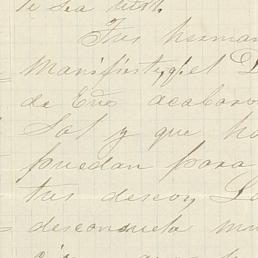 te sea util.
Tus herman
Manifieste, q.e el D
de Eno acabaron
Sol y que ha
puedan para
tus deseos, La
desconsuelo mu